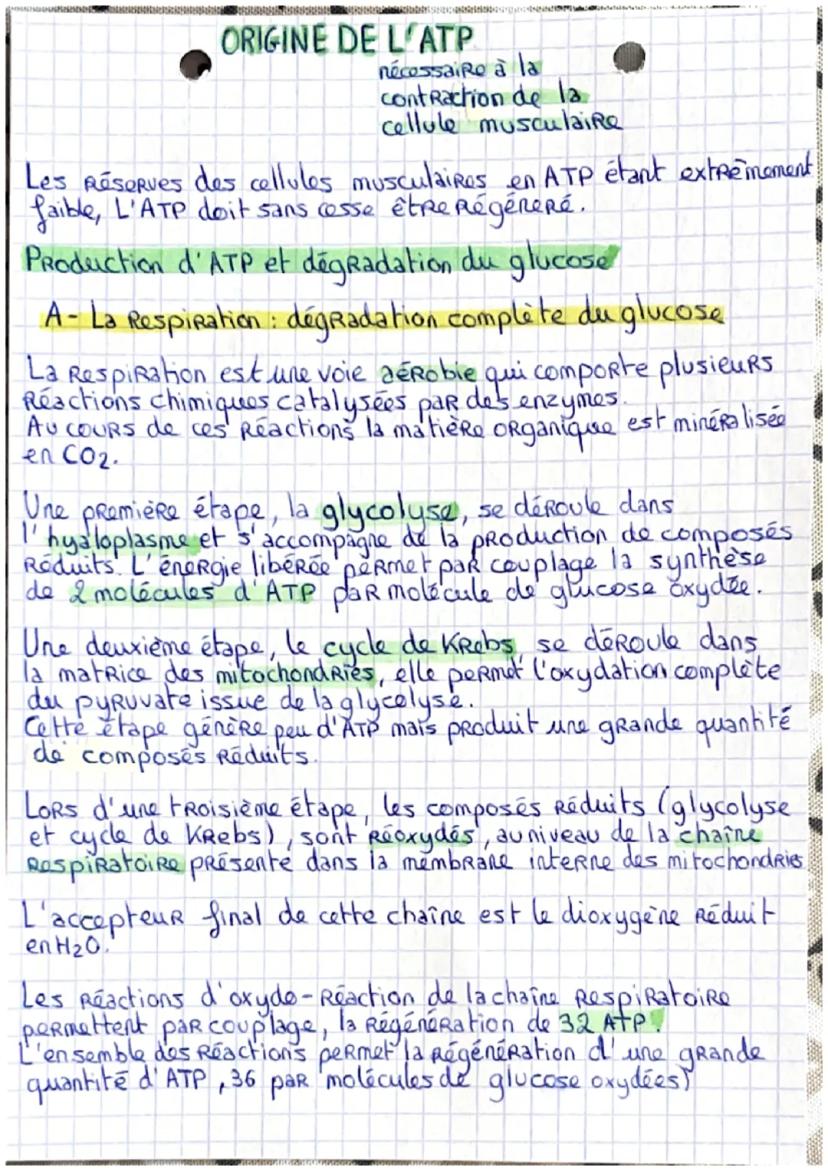 ORIGINE DE L'ATP
nécessaire à la
contraction de la
cellule musculaire
Les réserves des cellules musculaires en ATP étant extrêmement
faible, L'ATP doit sans cesse être régéneré.
Production d'ATP et dégradation du glucose
A- La Respiration : dégradation complète du glucose
La Respiration est une voie aérobie qui comporte plusieurs
réactions chimiques catalysées par des enzymes.
Au cours de ces réactions la matière organique est minéralisée
en CO2.
Une première étape, la glycolyse, se déroule dans
l'hyaloplasme et s'accompagne de la production de composés
réduits. L'énergie libérée permet par couplage la synthèse
de 2 molécules d'ATP par molécule de glucose oxydée.
Une deuxième étape, le cycle de Krebs, se déroule dans
la matrice des mitochondries, elle permet l'oxydation complète
du pyruvate issue de la glycolyse.
Cette étape génère peu d'ATP mais produit une grande quantité
de composés réduits.
Lors d'une troisième étape, les composés réduits (glycolyse
et cycle de Krebs), sont réoxydés, au niveau de la chaîne
respiratoire présente dans la membrane interne des mitochondries
L'accepteur final de cette chaîne est le dioxygène réduit
en H2O.
Les réactions d'oxydo-réaction de la chaîne respiratoire
permettent par couplage, la régénération de 32 ATP.
L'ensemble des réactions permet la régénération d'une grande
quantité d'ATP, 36 par molécules de glucose oxydées)